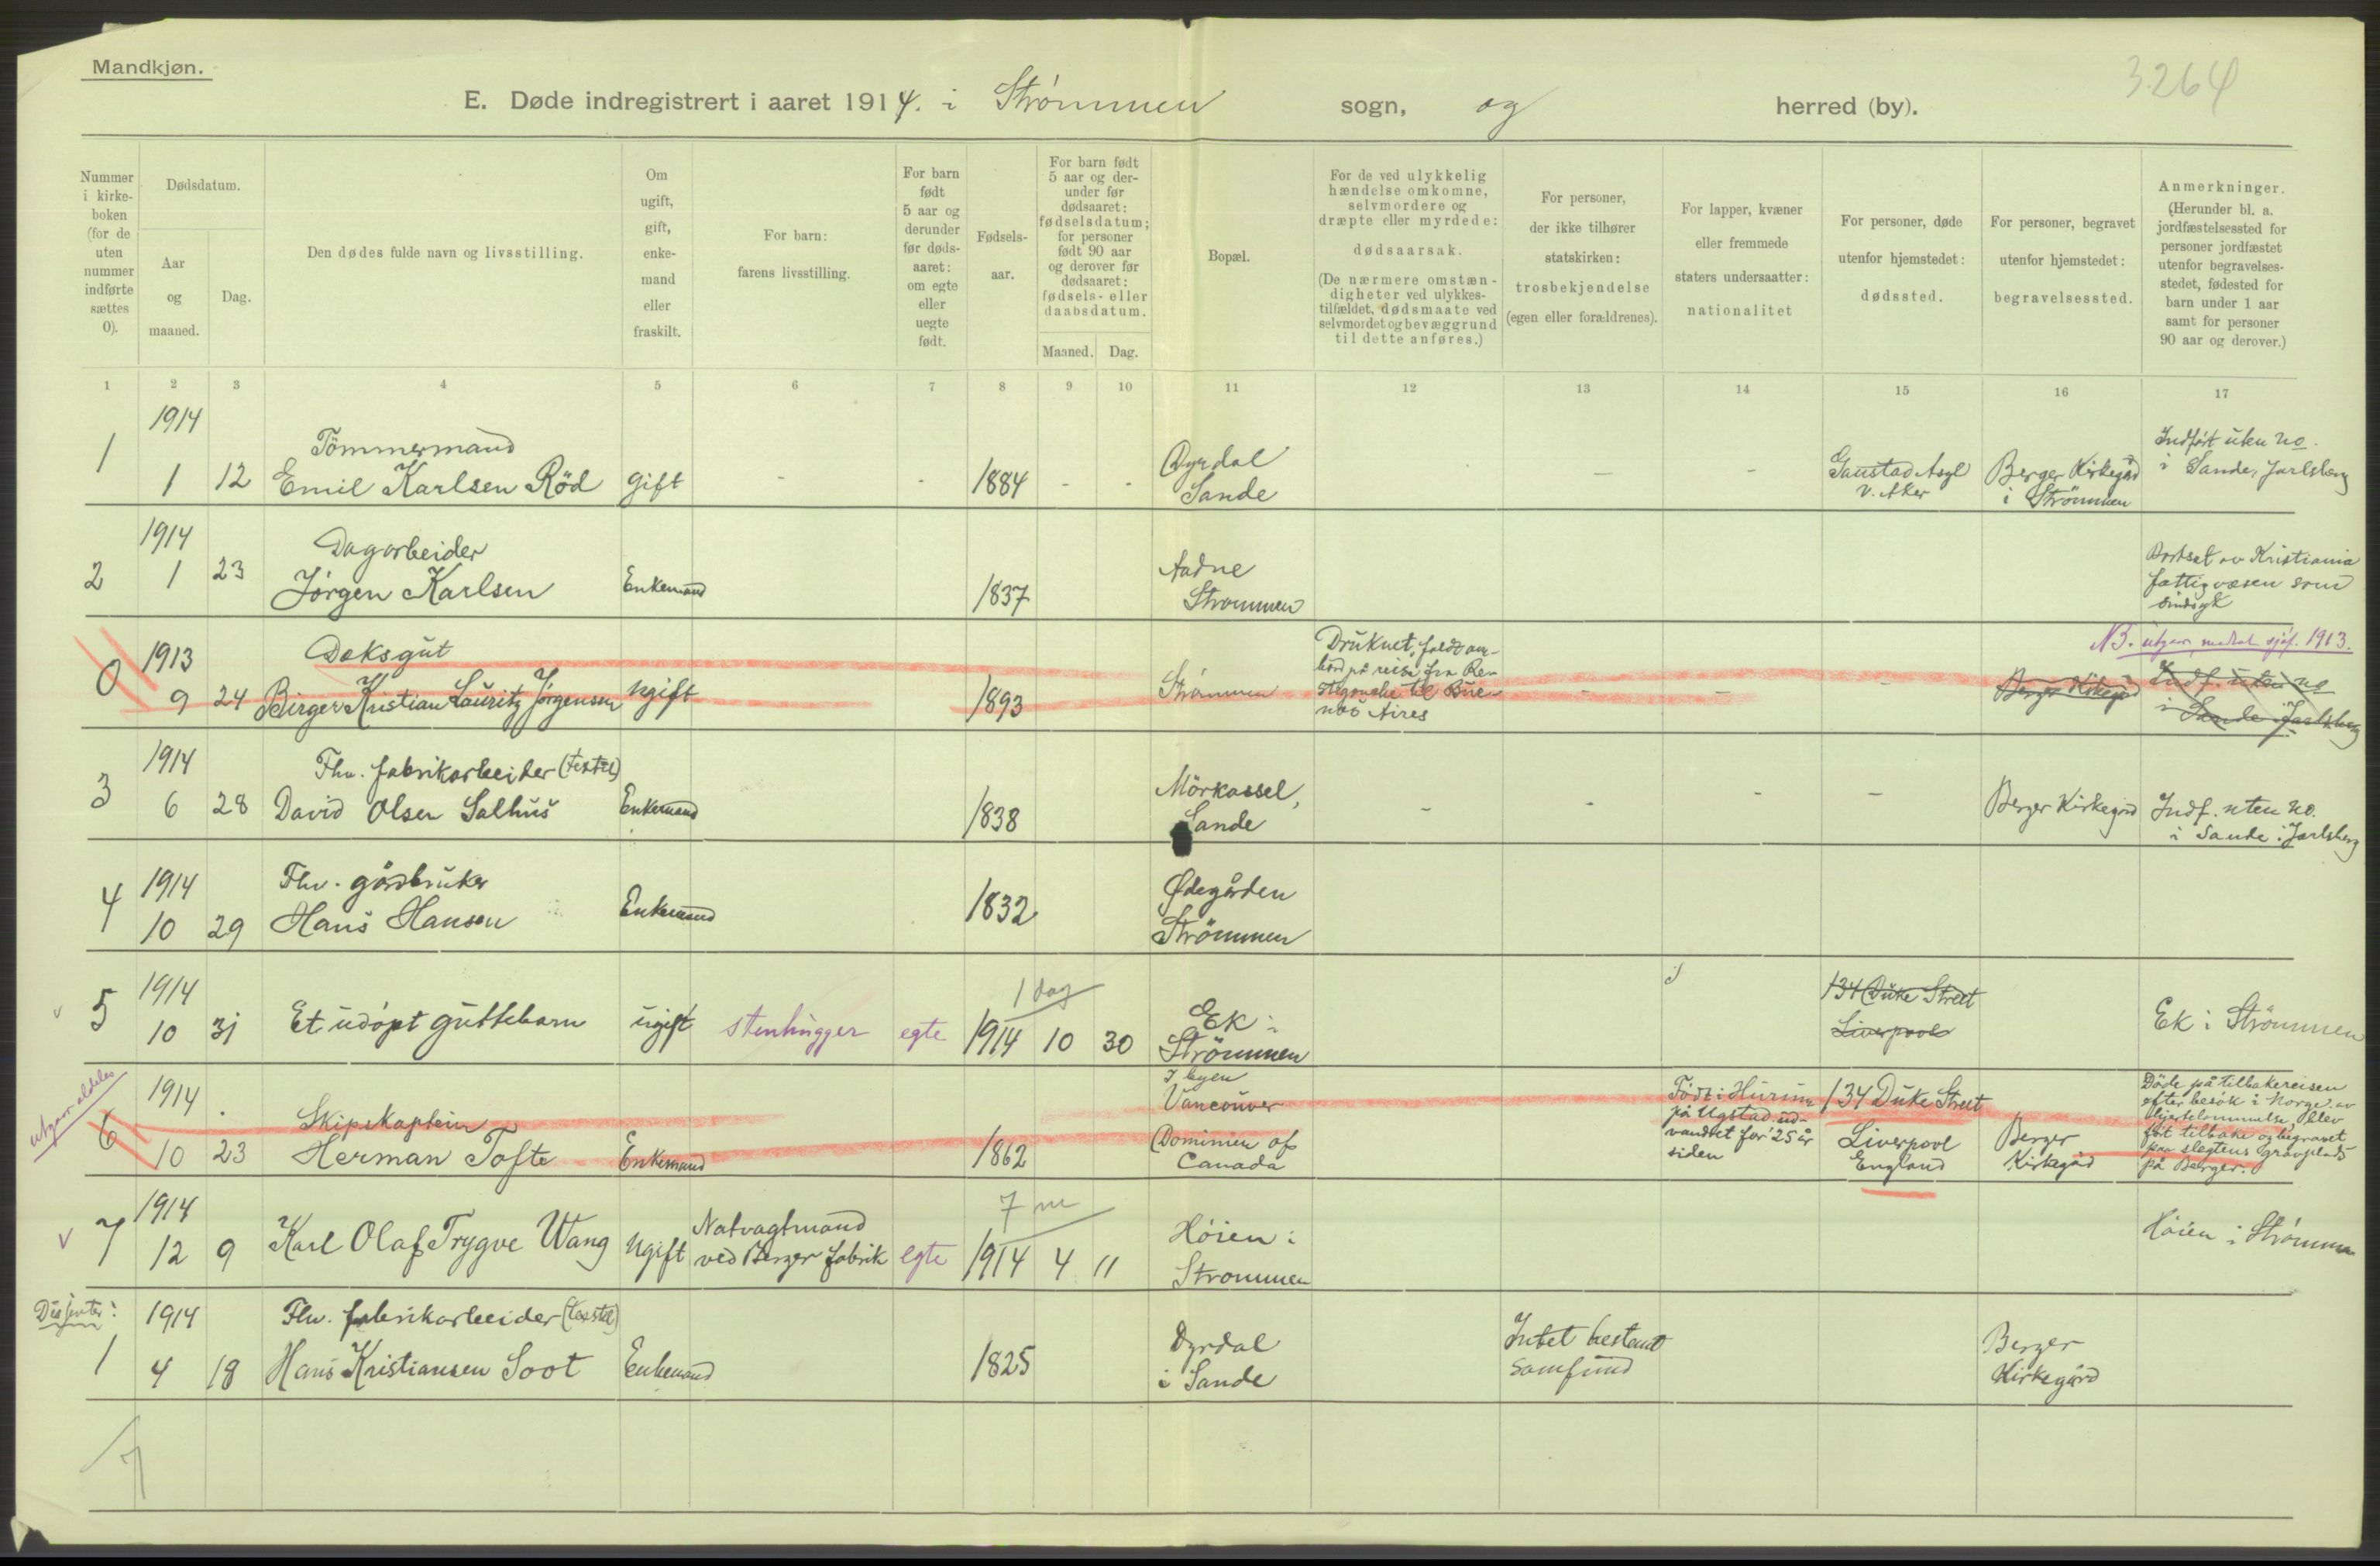 Mandkjøn.
3264
E. Døde indregistrert i aaret 1914. i Strømmen sogn, og herred (by).
Nummer i kirke-boken (for de uten nummer indførte sættes 0).
Dødsdatum.
Aar og maaned.
Dag.
Den dødes fulde navn og livsstilling.
Om ugift, gift, enke-mand eller fraskilt.
For barn: farens livsstilling.
For barn født 5 aar og derunder før døds-aaret: om egte eller uegte født.
Fødsels-aar.
For barn født 5 aar og der-under før dødsaaret: fødselsdatum; for personer født 90 aar og derover før dødsaaret: fødsels- eller daabsdatum.
Maaned. Dag.
Bopæl.
For de ved ulykkelig hændelse omkomne, selvmordere og dræpte eller myrdede: dødsaarsak.
(De nærmere omstæn-digheter ved ulykkes-tilfældet, dødsmaate ved selvmordet og bevæggrund til dette anføres.)
For personer, der ikke tilhører statskirken: trosbekjendelse (egen eller forældrenes).
For lapper, kvæner eller fremmede staters undersaatter: nationalitet
For personer, døde utenfor hjemstedet: dødssted.
For personer, begravet utenfor hjemstedet: begravelsessted.
Anmerkninger. (Herunder bl. a. jordfæstelsessted for personer jordfæstet utenfor begravelses-stedet, fødested for barn under 1 aar samt for personer 90 aar og derover.)
1 2 3 4 5 6 7 8 9 10 11 12 13 14 15 16 17
1914
Tömmermand
1 1 12 Emil Karlsen Röd gift - - 1884 - - Dyrdal Sande — - Gaustad Asyl V. Aker Berger Kirkegård i Strömmen Indført uten no. i Sande, Jarlsberg
1914
Dagarbeider
2 1 23 Jørgen Karlsen Enkemand 1837 Aadne Strommen Bortsat av Kristiania fattigvæsen som sindsyk
NB. utgaar, medtat sjøf. 1913.
1913
Deksgut
0 9 24 Birger Kristian Lauritz Jørgensen ugift 1893 Strömmen Druknet, faldt om-bord på reise fra Re-stigouche til Bue-nos Aires - - - Berger Kirkegård Indf. uten no i Sande Jarlsberg
1914
Fhv. fabrikarbeider (textil)
3 6 28 David Olsen Salhus Enkemand 1838 Mörkassel, Sande - - - - Berger Kirkegård Indf. uten no. i Sande i Jarlsberg
1914
Fhv. gårdbruker
4 10 29 Hans Hansen Enkemand 1832 Ødegården Strömmen
1914
1 dag
5 10 31 Et udöpt guttebarn ugift stenhugger egte 1914 10 30 Ek i Strömmen 134 Duke Street Liverpool Ek i Strömmen
utgaar aldeles
1914
Skipskaptein
6 10 23 Herman Tofte Enkemand 1862 I byen Vancouver Dominion of Canada Född i Hurum på Ugstad ud-vandret for 25 år siden 134 Duke Street Liverpool England Berger Kirkegård Döde på tilbakereisen efter besök i Norge av hjertelammelse, blev fört tilbake og begravet paa slegtens gravplads på Berger.
1914
7 m
7 12 9 Karl Olaf Trygve Wang Ugift Natvagtmand ved Berger fabrik egte 1914 4 11 Höien i Strommen Höien i Strömmen
Dissenter:
1914
Fhv. fabrikarbeider (textil)
1 4 18 Hans Kristiansen Soot Enkemand 1825 Dyrdal i Sande Intet bestemt samfund Berger Kirkegård
7